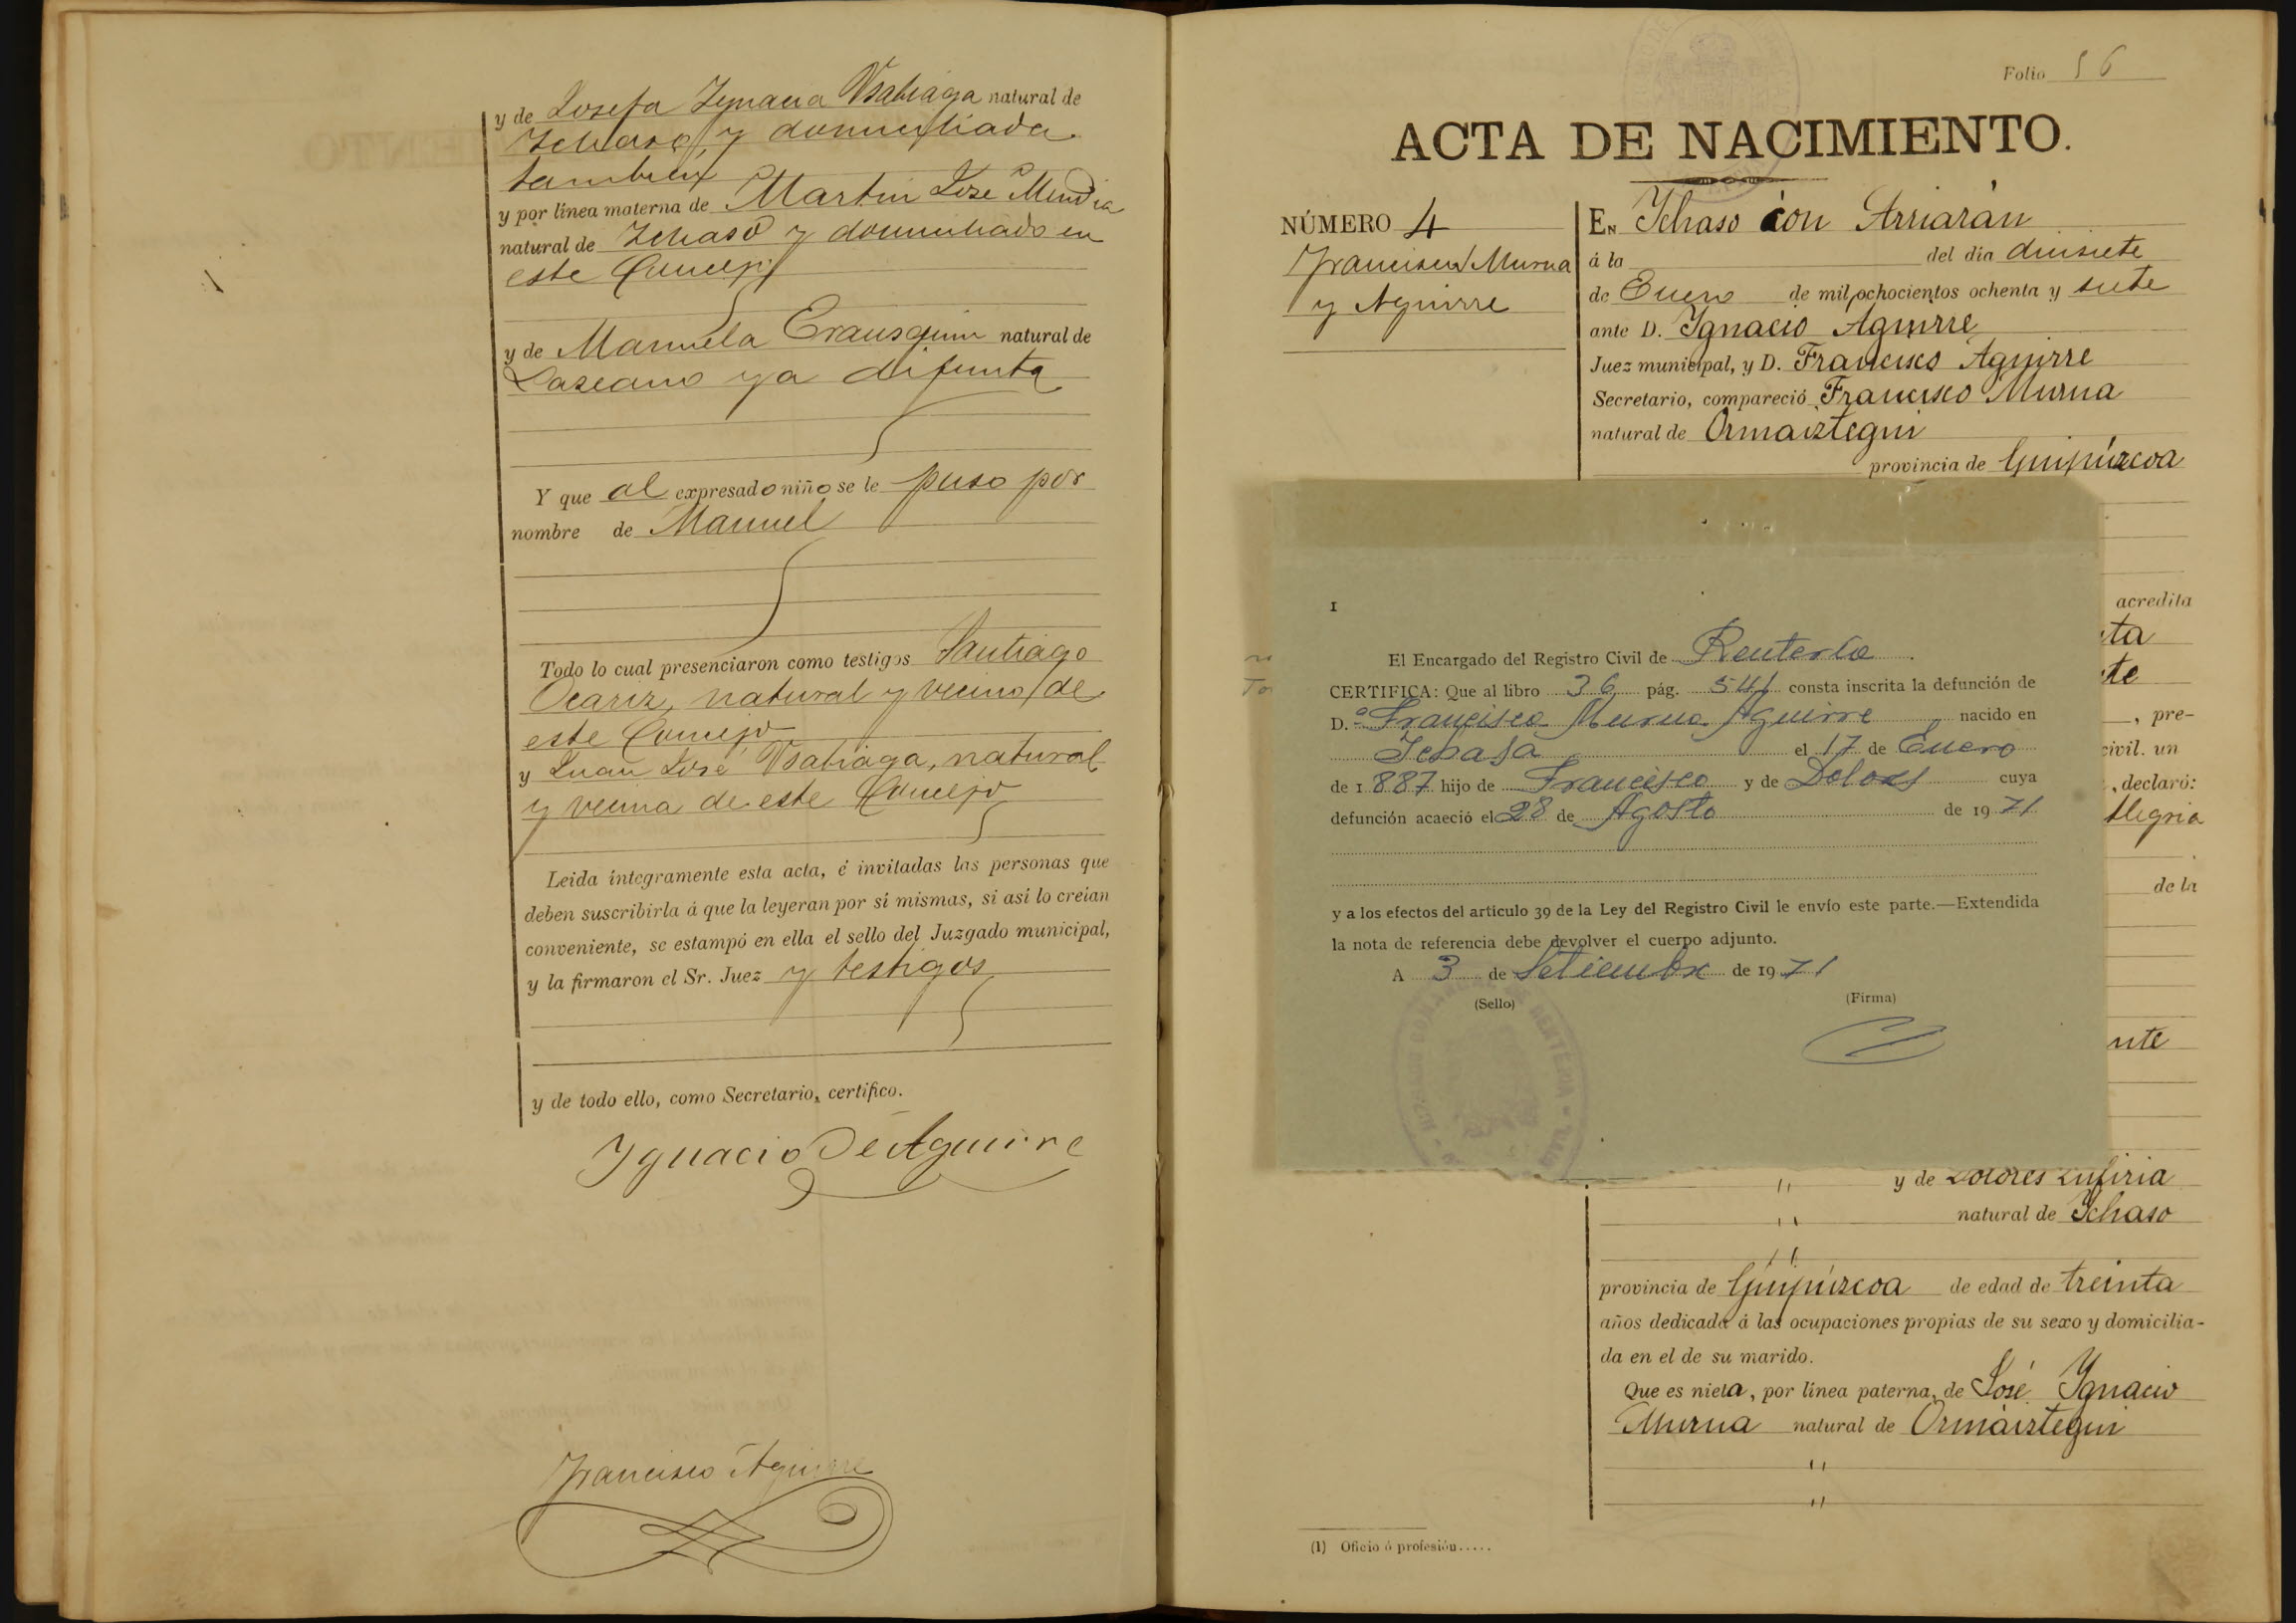 y de Josefa Ygnacia Usabiaga natural de
Ychaso y domiciliada
tambien
y por línea materna de Martin Jose Mendia
natural de Ychaso y domiciliado en
este Concejo
y de Manuela Erausquin natural de
Lazcano ya difunta
Y que al expresado niño se le puso por
nombre de Manuel
Todo lo cual presenciaron como testigos Santiago
Ocariz, natural y vecino de
este Concejo
y Juan José Usabiaga, natural
y vecino de este Concejo
Leida íntegramente esta acta, é invitadas las personas que
deben suscribirla á que la leyeran por sí mismas, si así lo creían
conveniente, se estampó en ella el sello del Juzgado municipal,
y la firmaron el Sr. Juez y testigos
y de todo ello, como Secretario, certifico.
Ygnacio De Aguirre
Francisco Aguirre
Folio 56
ACTA DE NACIMIENTO.
NÚMERO 4
Francisca Murua
y Aguirre
En Ychaso con Arriarán
á la del dia diecisiete
de Enero de mil ochocientos ochenta y siete
ante D. Ygnacio Aguirre
Juez municipal, y D. Francisco Aguirre
Secretario, compareció Francisco Murua
natural de Ormaiztegui
provincia de Guipúzcoa
acredita
ta
te
, pre-
civil. un
, declaró:
Alegria
de la
nte
I
El Encargado del Registro Civil de Rentería
CERTIFICA: Que al libro 36 pág. 541 consta inscrita la defunción de
D.ª Francisca Murua Aguirre nacido en
Ichaso el 17 de Enero
de 1887 hijo de Francisco y de Dolores cuya
defunción acaeció el 28 de Agosto de 1971
y a los efectos del artículo 39 de la Ley del Registro Civil le envío este parte.—Extendida
la nota de referencia debe devolver el cuerpo adjunto.
A 3 de Setiembre de 1971
(Sello)
(Firma)
y de Dolores
natural de Ychaso
provincia de Guipúzcoa de edad de treinta
años dedicada á las ocupaciones propias de su sexo y domicilia-
da en el de su marido.
Que es nieta, por línea paterna, de José Ygnacio
Murua natural de Ormáiztegui
(1) Oficio ó profesión.....